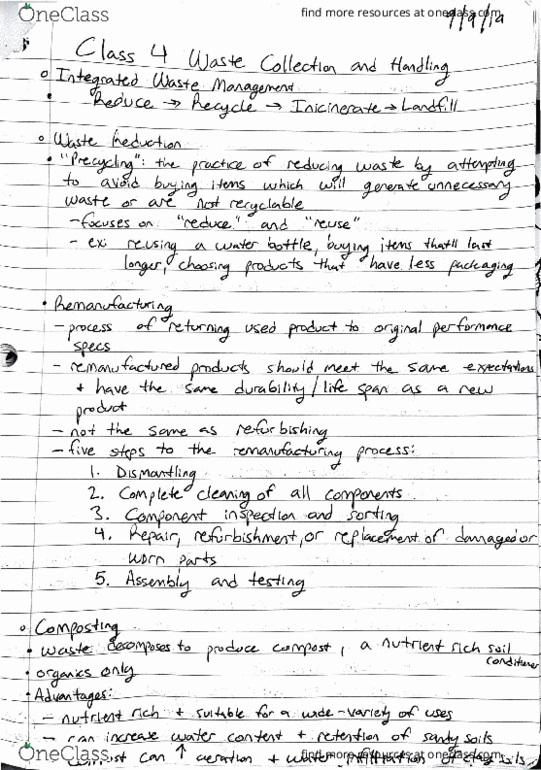 OneClass
find more resources at oneclass.com
9/9/19
Class 4 Waste Collection and Handling
Integrated Waste Management
Reduce → Recycle → Inicinerate → Landfill
Waste Reduction
"Precycling": the practice of reducing waste by attempting
to avoid buying items which will generate unnecessary
waste or are not recyclable
- focuses on "reduce" and "reuse"
- ex: reusing a water bottle, buying items that'll last
longer, choosing products that have less packaging
• Remanufacturing
- process of returning used product to original performance
specs
- remanufactured products should meet the same expectations
+ have the same durability/life span as a new
product
- not the same as refurbishing
- five steps to the remanufacturing process:
1. Dismantling
2. Complete cleaning of all components
3. Component inspection and sorting
4. Repair, refurbishment, or replacement of damaged or
worn parts
5. Assembly and testing
Composting
• waste decomposes to produce compost, a nutrient rich soil
conditioner
• organics only
• Advantages:
- nutrient rich + suitable for a wide-variety of uses
- can increase water content + retention of sandy soils
can ↑ aeration + water infiltration of clay soils
OneClass
find more resources at oneclass.com